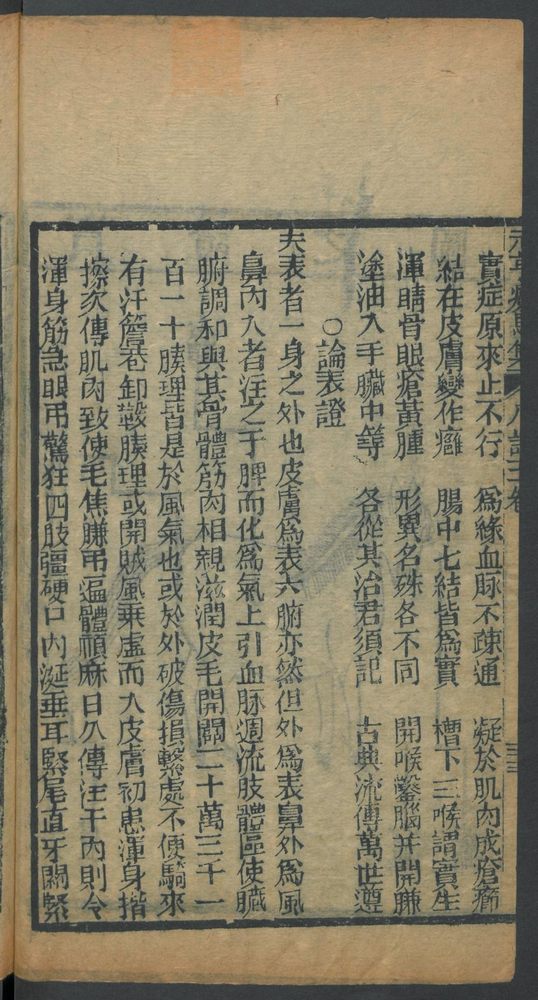 實症原來止不行　為緣血脉不疎通　凝於肌肉成瘡癤
結在皮膚變作癰　腸中七結皆爲實　槽下三喉謂實生
渾睛骨眼瘡黃腫　形異名殊各不同　開喉鑿腦并開臁
塗油入手臟中等　各從其治君須記　古典流傳萬世遵
○論表證
夫表者一身之外也皮膚爲表六腑亦然但外爲表鼻外爲風
鼻內入者注之于脾而化爲氣上引血脉週流肢體區使臟
腑調和與其骨體筋肉相親滋潤皮毛開闢二十萬三千一
百一十腠理皆是於風氣也或於外破傷損繫處不便騎來
有汗簷巷卸鞍腠理或開賊風乘虛而入皮膚初患渾身揩
擦次傳肌肉致使毛焦臁吊遍體頑麻日久傳注于內則令
渾身筋急眼吊驚狂四肢彊硬口內涎垂耳緊尾直牙關緊